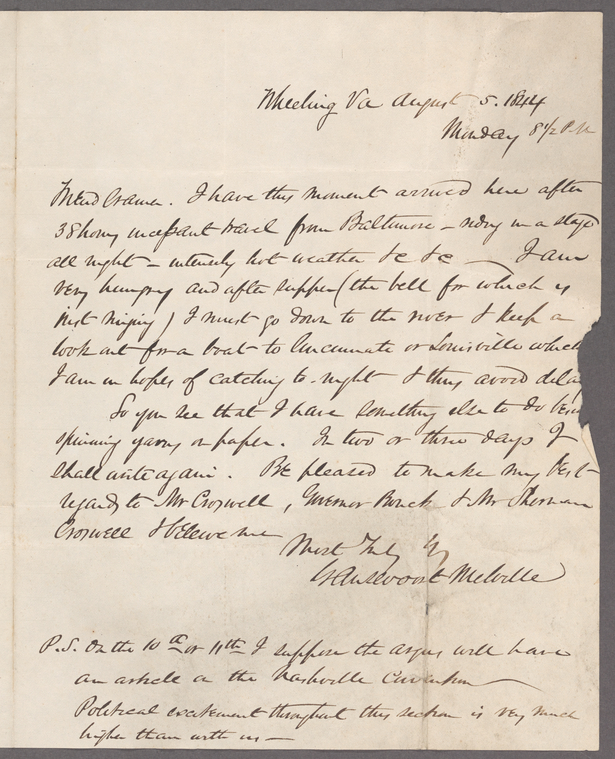 Wheeling Va August 5. 1844
Monday 8 1/2 P.M
Friend Cramer. I have this moment arrived here after
38 hours incessant travel from Baltimore – riding in a stage
all night – intensely hot weather &c &c — I am
very hungry and after supper (the bell for which is
just ringing) I must go down to the river & keep a
look out for a boat to Cincinnati or Louisville which
I am in hopes of catching to-night & thus avoid delay
So you see that I have something else to do besi
spinning yarns on paper. In two or three days I
shall write again. Be pleased to make my best
regards to Mr Croswell, Governor Bouck & Mr Sherman
Croswell & believe me
Most Truly Yrs
Gansevoort Melville
P.S. On the 10th or 11th I suppose the Argus will have
an article on the Nashville Convention —
Political excitement throughout this section is very much
higher than with us —